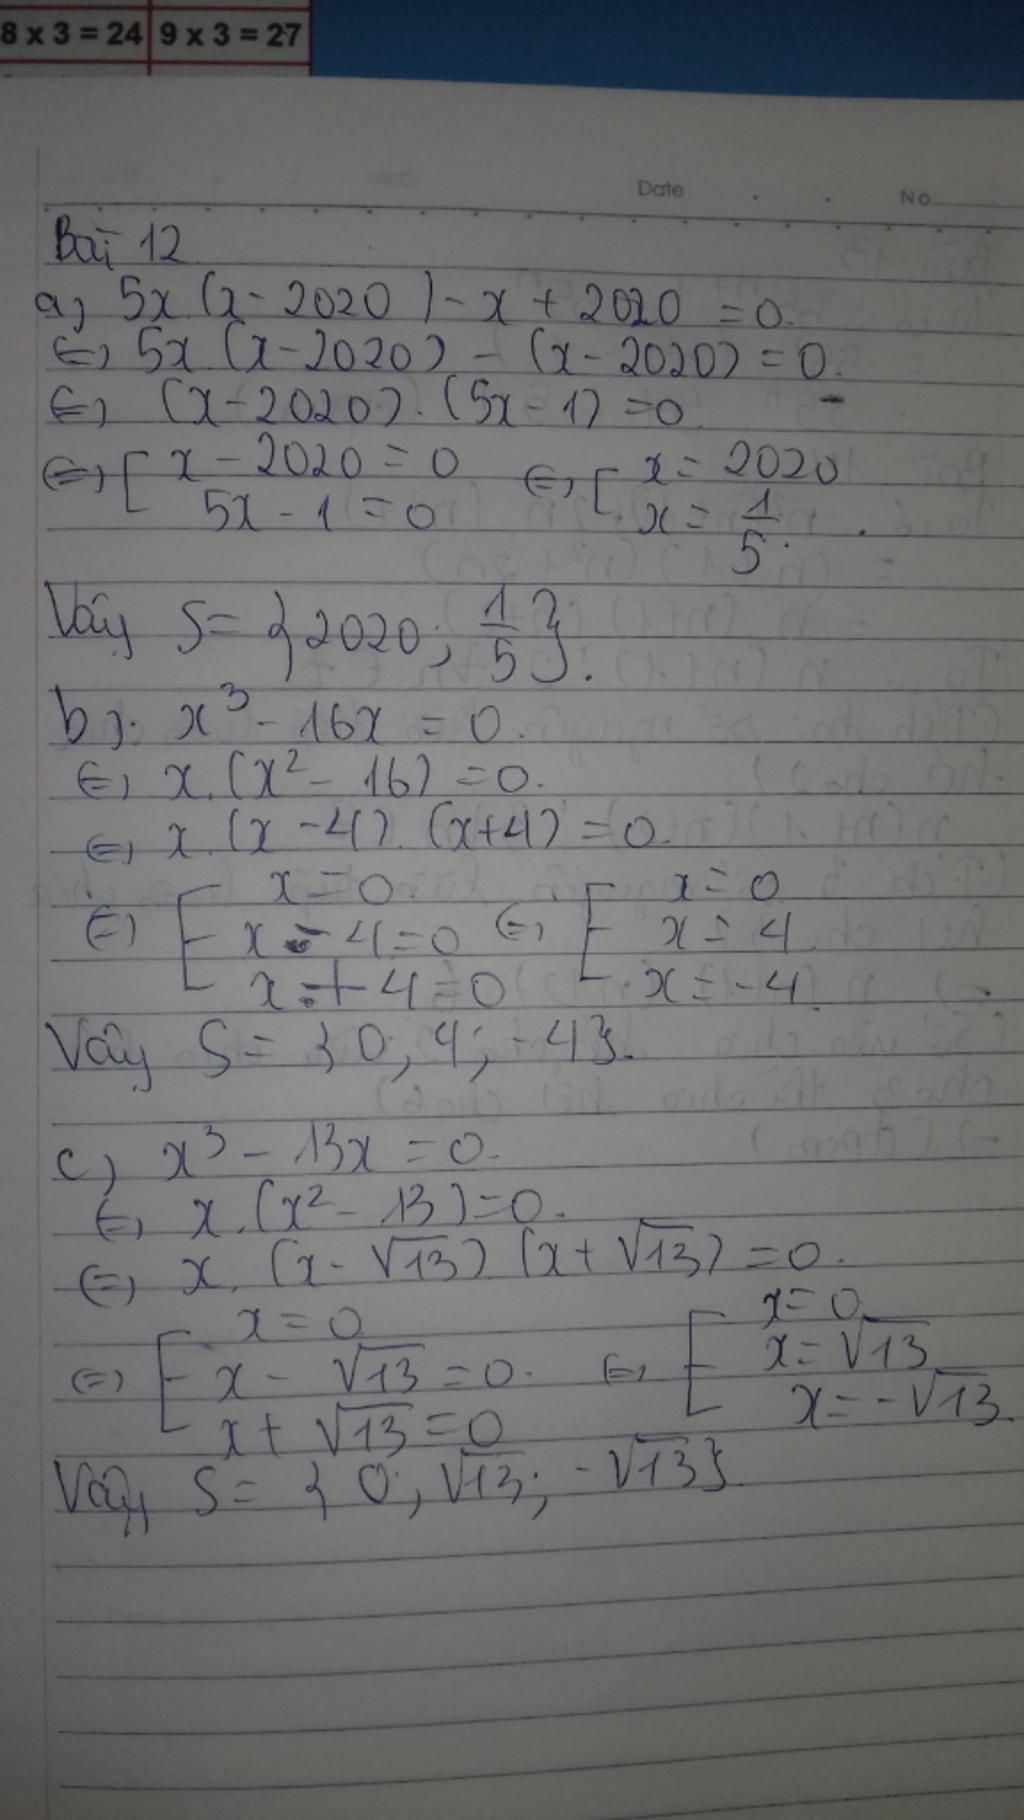 8 x 3 = 24 9 x 3 = 27
Date No
Bài 12
a, 5x.(x-2020)-x+2020=0.
⇔ 5x.(x-2020)-(x-2020)=0.
⇔ (x-2020).(5x-1)=0
⇔ [ x-2020=0 ⇔ [ x=2020
5x-1=0 x=1/5.
Vậy S={2020; 1/5}.
b). x³-16x=0.
⇔ x.(x²-16)=0.
⇔ x.(x-4).(x+4)=0.
⇔ [ x=0. ⇔ [ x=0
x-4=0 x=4
x+4=0 x=-4.
Vậy S={0; 4; -4}.
c, x³-13x=0.
⇔ x.(x²-13)=0.
⇔ x.(x-√13)(x+√13)=0.
⇔ [ x=0 ⇔ [ x=0
x-√13=0. x=√13
x+√13=0 x=-√13.
Vậy S={0; √13; -√13}